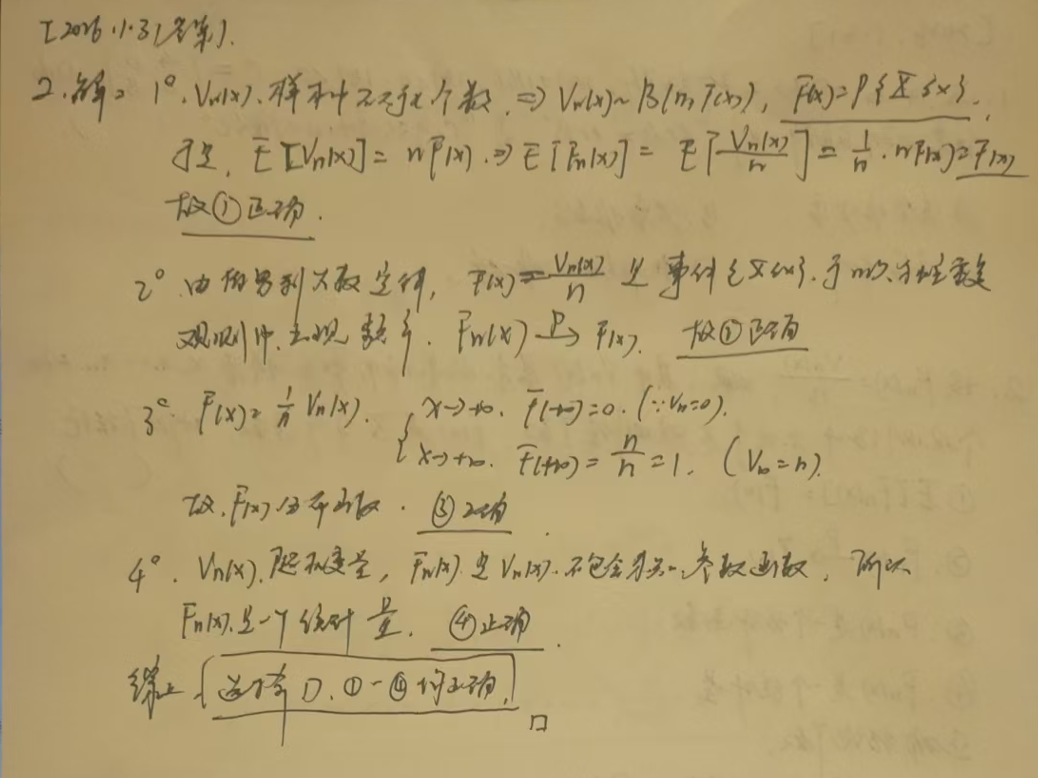 [2026.1.31 答案].
2.解: 1°. Vn(x). 样本中不大于x个数, ⇒ Vn(x)~B(n, F(x)), F(x)=P{X≤x}.
于是, E[Vn(x)] = nF(x). ⇒ E[Fn(x)] = E[Vn(x)/n] = 1/n · nF(x) = F(x)
故①正确.
2°. 由伯努利大数定律, F(x) = Vn(x)/n 是事件{X≤x}. 于n次
观测中.出现频率. Fn(x) →P F(x). 故②正确
3° F(x)= 1/n Vn(x). { x→-∞. F(-∞)=0. (∵Vn=0).
x→+∞. F(+∞) = n/n = 1. (Vn=n).
故. F(x) 分布函数. ③正确.
4°. Vn(x). 随机变量, Fn(x) 是 Vn(x). 不包含另外参数函数, 所以
Fn(x).是一个统计量. ④正确.
综上. 选择 D. ①-④均正确. □